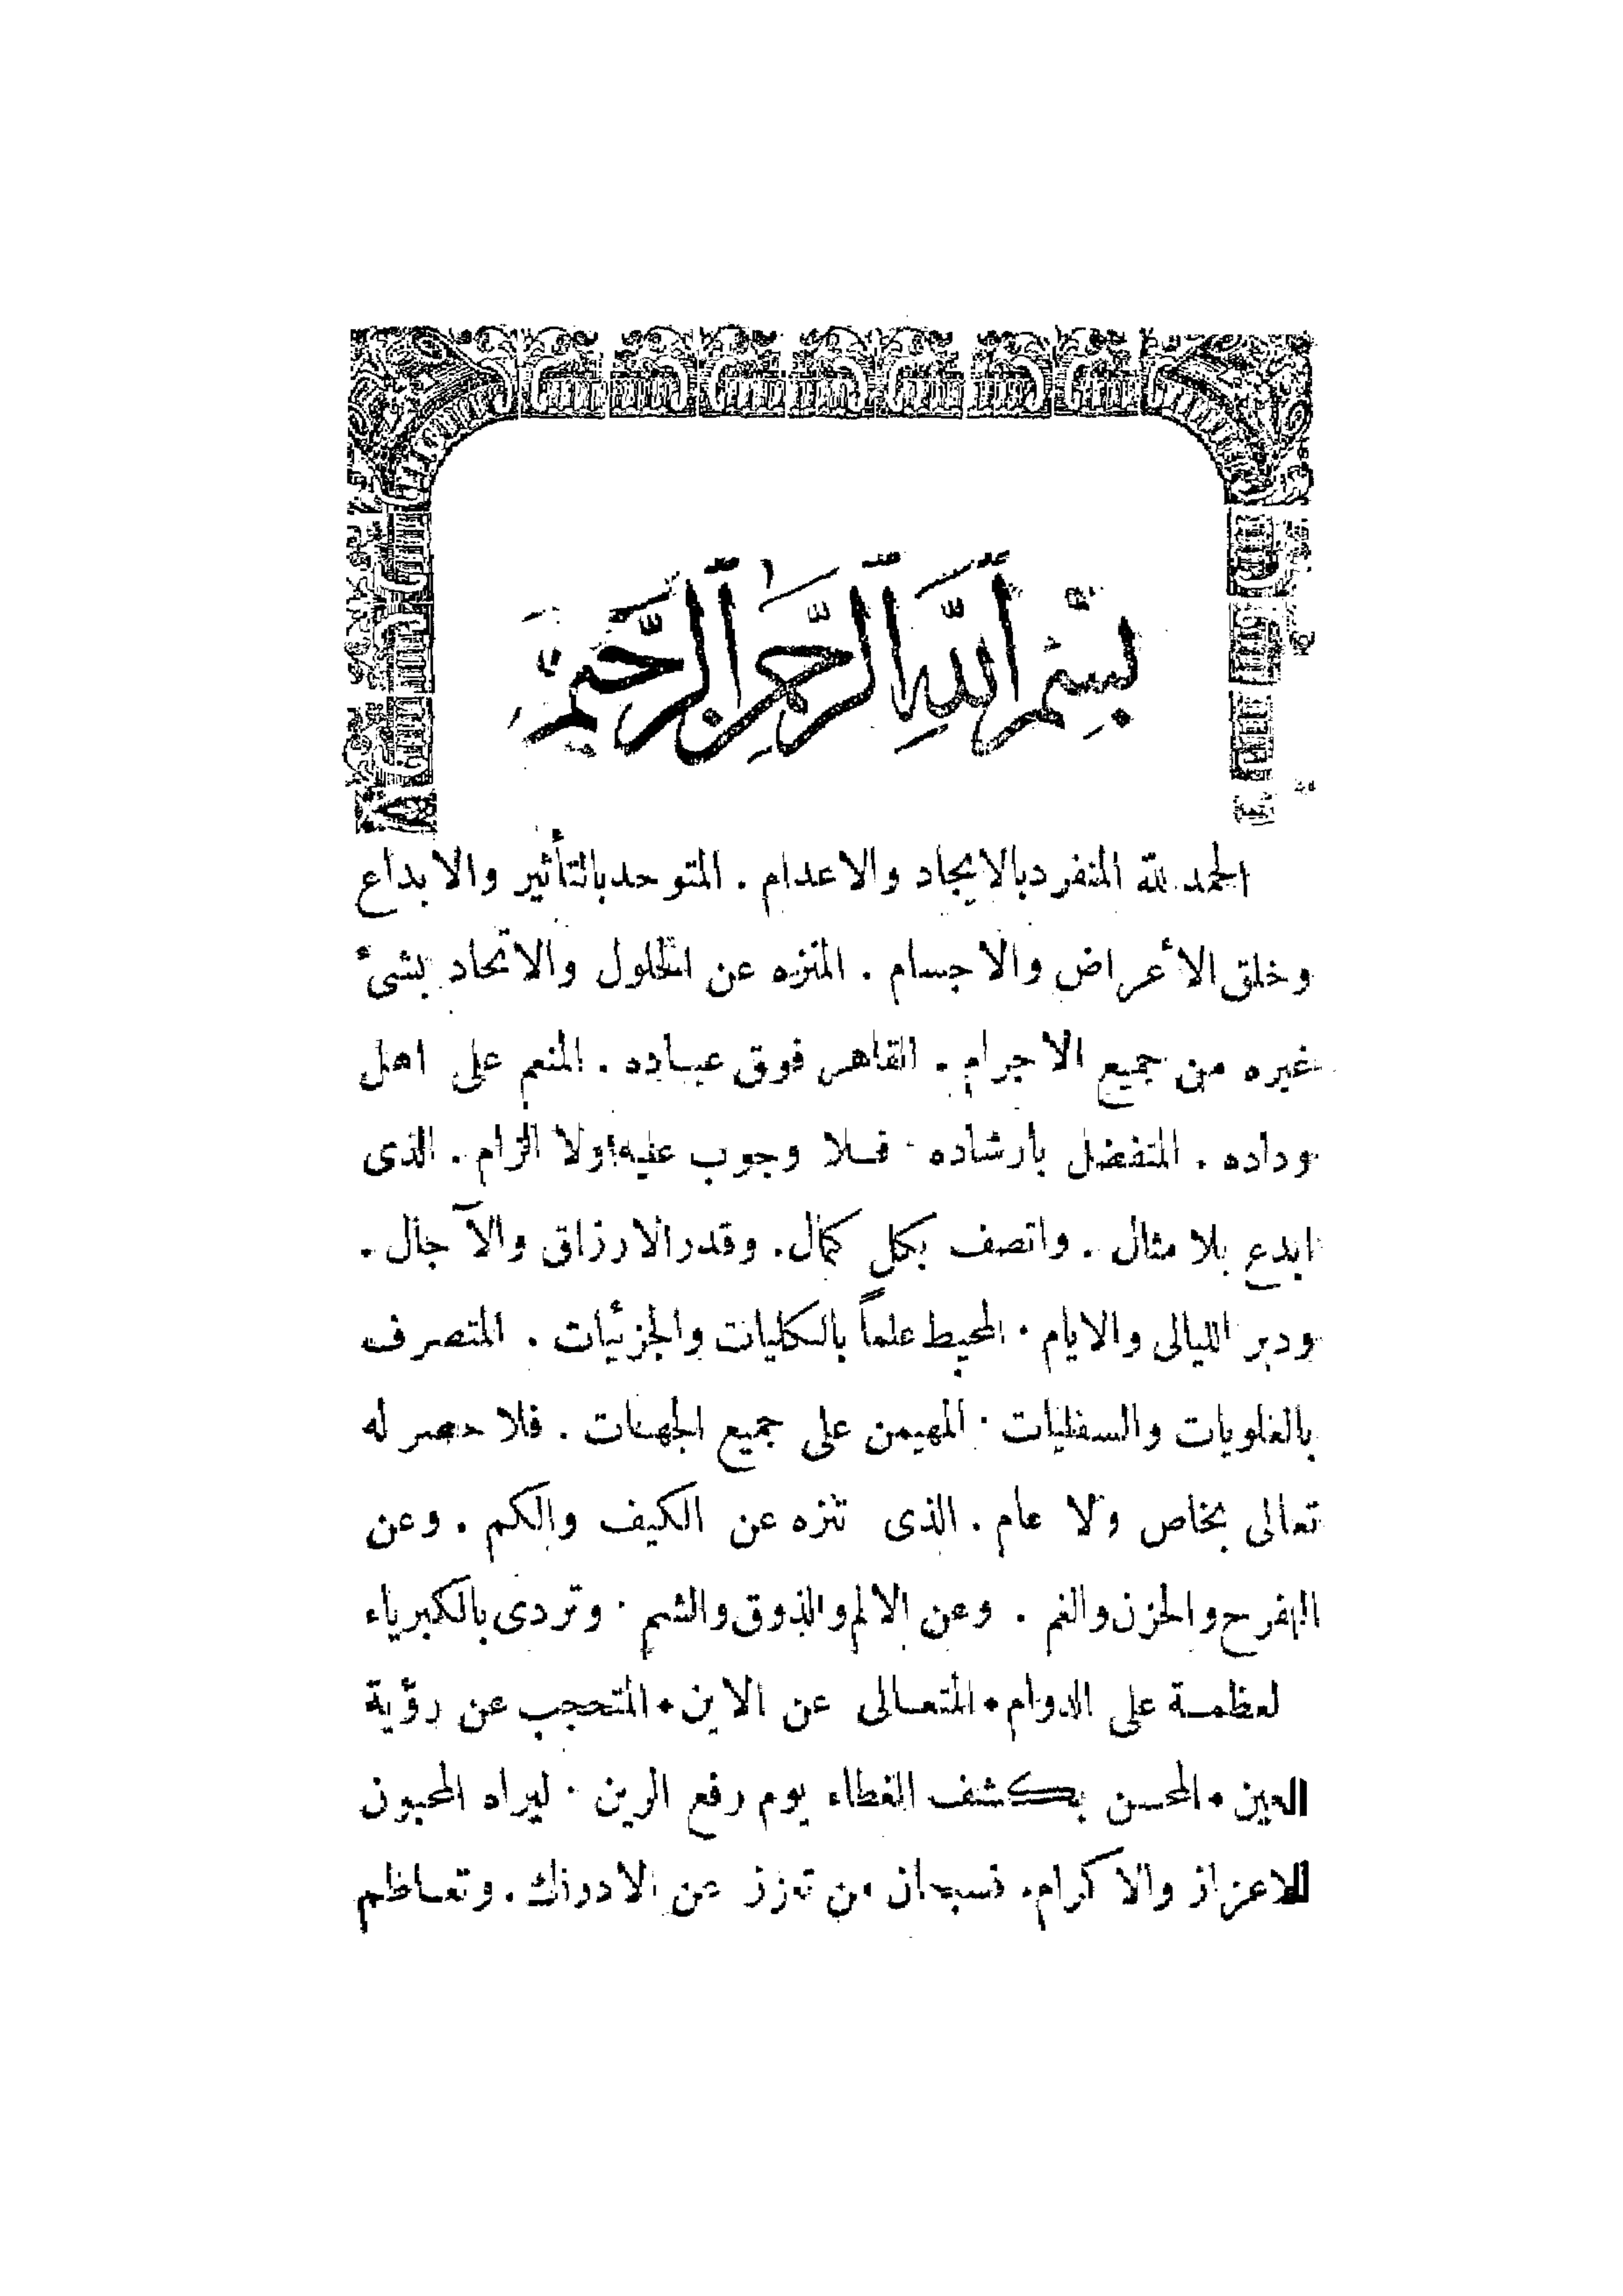 بِسْمِ ٱللَّهِ ٱلرَّحْمَٰنِ ٱلرَّحِيمِ
الحمد لله المنفرد بالايجاد والاعدام . المتوحد بالتأثير والابداع
وخلق الأعراض والاجسام . المنزه عن الحلول والاتحاد بشئ
غيره من جميع الاجرام . القاهر فوق عباده . المنعم على اهل
وداده . المتفضل بارشاده . فلا وجوب عليه ولا الزام . الذى
ابدع بلا مثال . واتصف بكل كمال . وقدر الارزاق والآجال .
ودبر الليالى والايام . المحيط علماً بالكليات والجزئيات . المتصرف
بالعلويات والسفليات . المهيمن على جميع الجهات . فلا حصر له
تعالى بخاص ولا عام . الذى تنزه عن الكيف والكم . وعن
الفرح والحزن والغم . وعن الالم والذوق والشم . وتردى بالكبرياء
لعظمة على الدوام . المتعالى عن الاين . المتحجب عن رؤية
العين . المحسن بكشف الغطاء يوم رفع الرين . ليراه المحبون
للاعزاز والاكرام . فسبحان من تعزز عن الادراك . وتعاظم